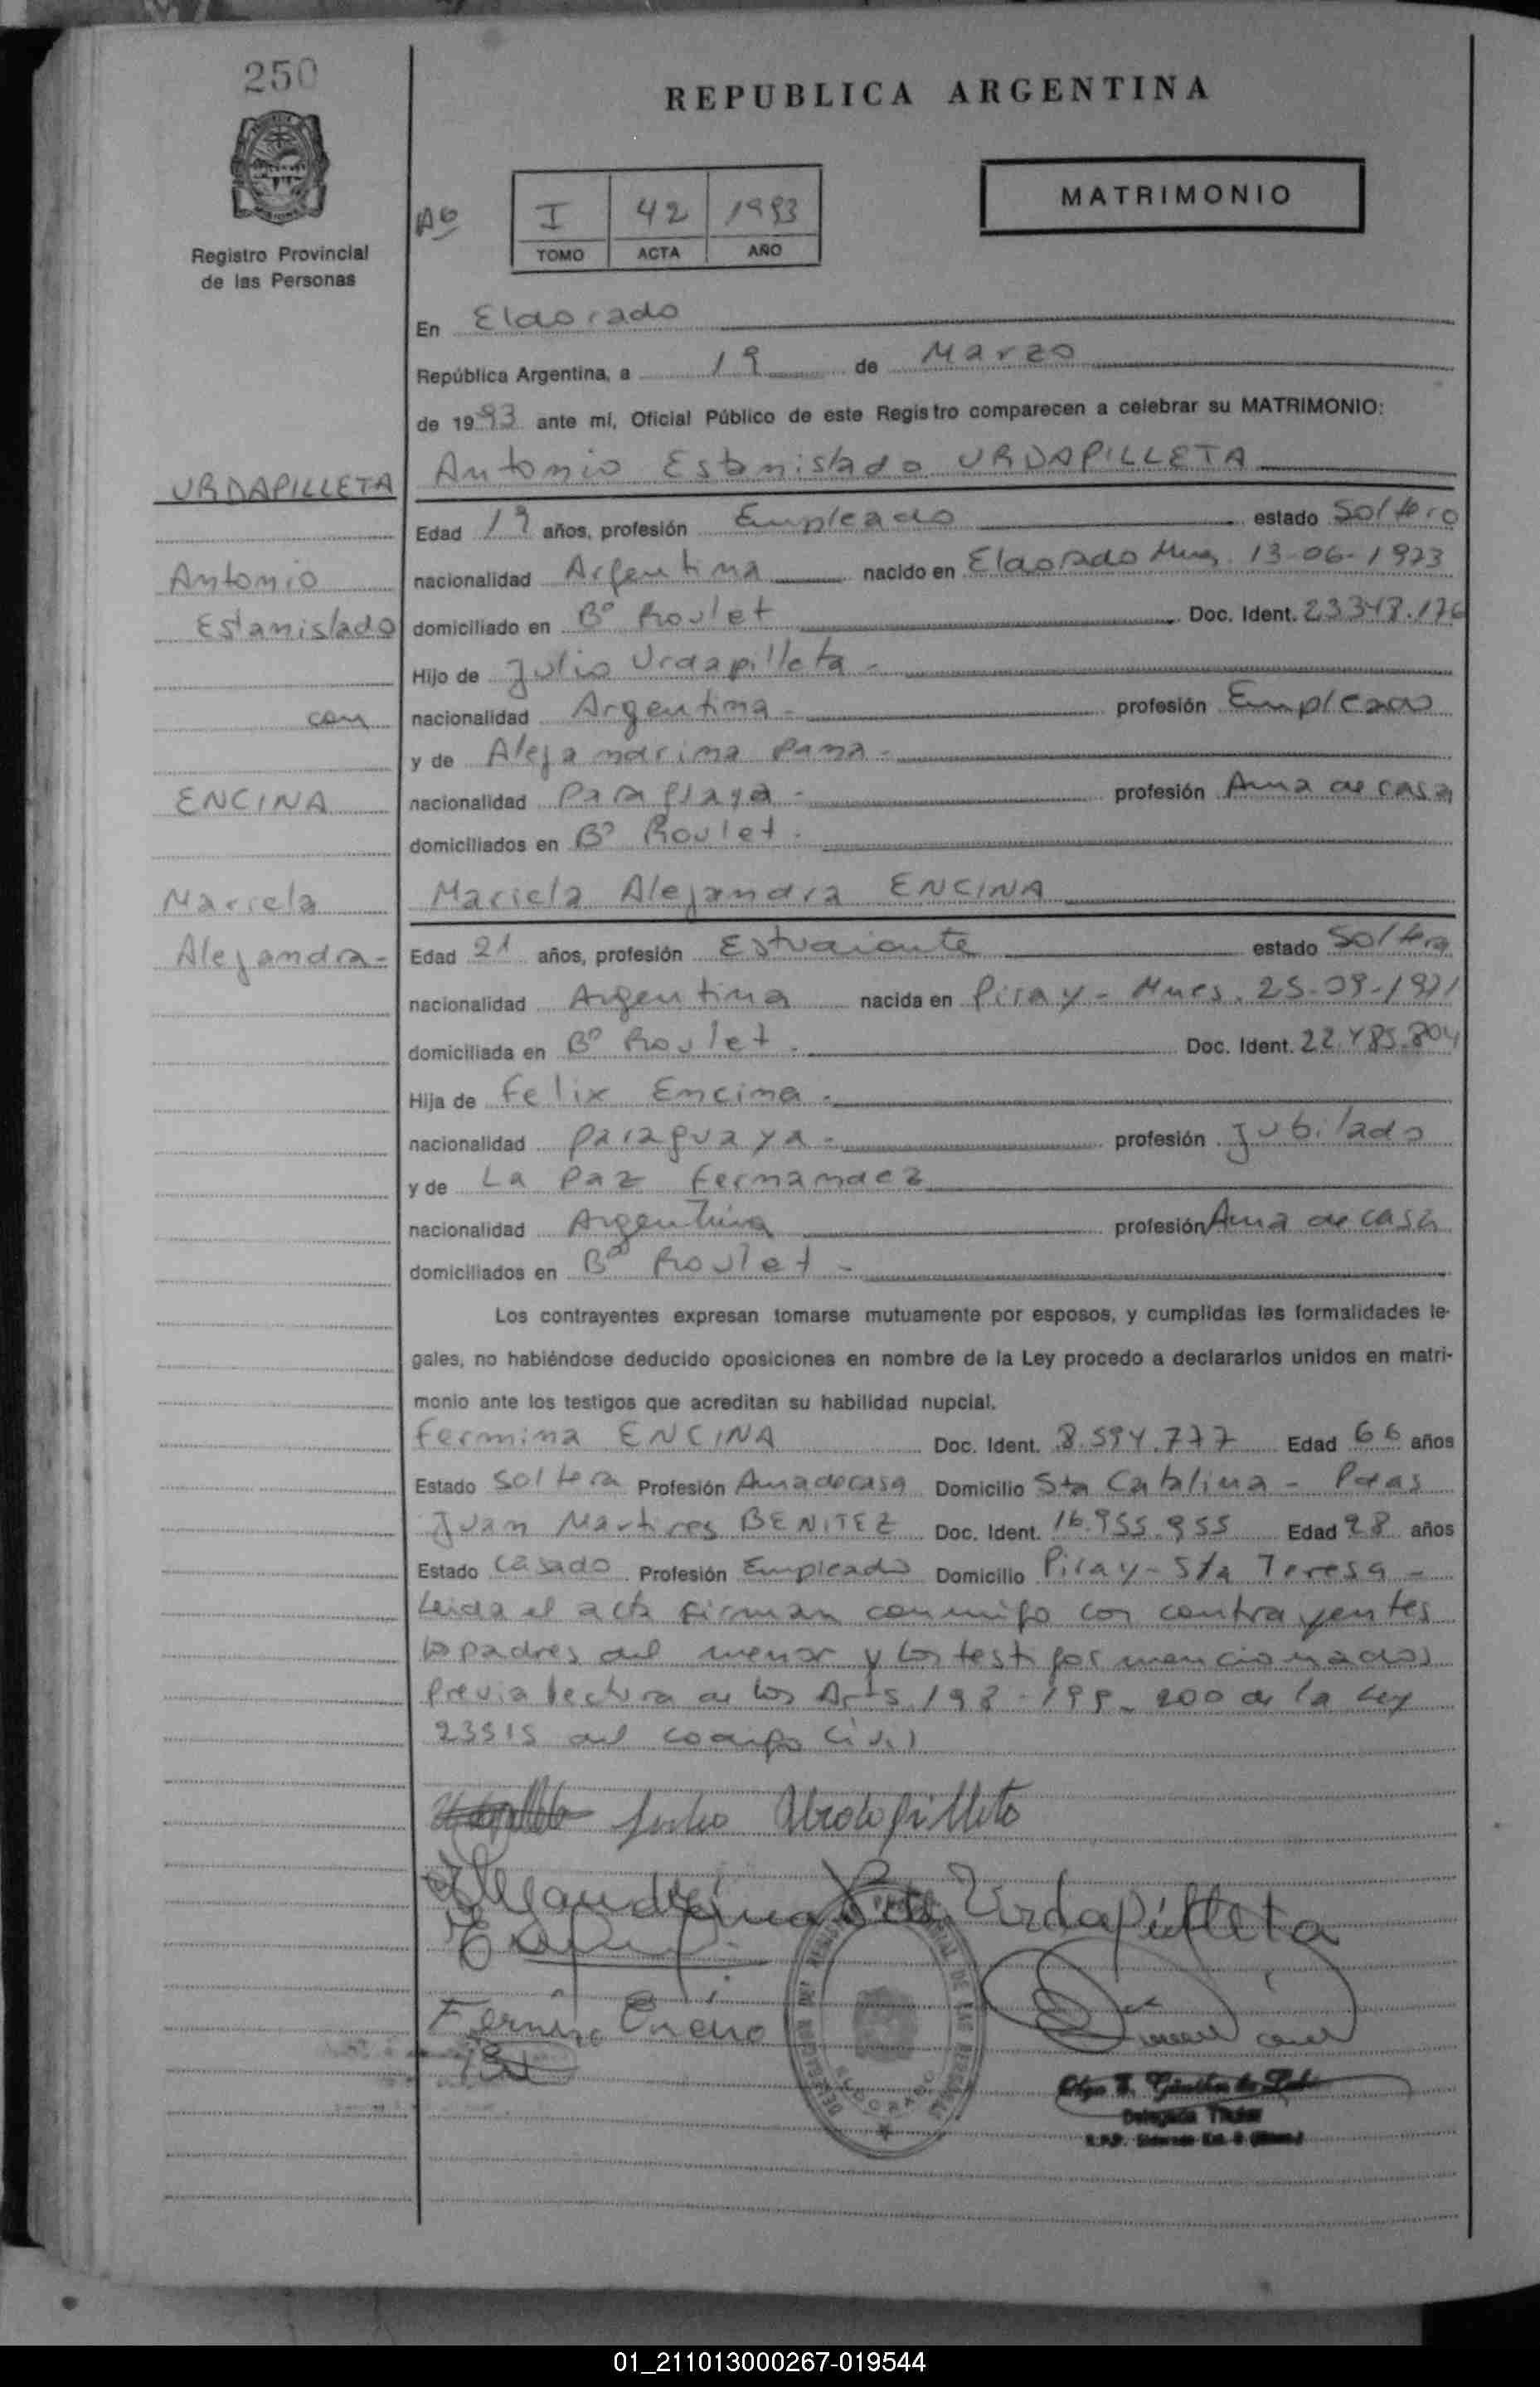 250
REPUBLICA ARGENTINA
MATRIMONIO
I 42 1993
TOMO ACTA AÑO
Registro Provincial
de las Personas
En Eldorado
República Argentina, a 19 de Marzo
de 1993 ante mi, Oficial Público de este Registro comparecen a celebrar su MATRIMONIO:
Antonio Estanislado URDAPILLETA
URDAPILLETA
Antonio
Estanislado
con
ENCINA
Mariela
Alejandra
Edad 19 años, profesión Empleado estado Soltero
nacionalidad Argentina nacido en Eldorado Mnes. 13-06-1973
domiciliado en Bº Roulet Doc. Ident.
Hijo de Julio Urdapilleta
nacionalidad Argentina profesión Empleado
y de Alejandrina
nacionalidad Paraguaya profesión Ama de casa
domiciliados en Bº Roulet
Mariela Alejandra ENCINA
Edad 21 años, profesión Estudiante estado Soltera
nacionalidad Argentina nacida en Piray - Mnes. 25-09-1971
domiciliada en Bº Roulet Doc. Ident. 22.485.804
Hija de Felix Encina
nacionalidad paraguaya profesión Jubilado
y de La Paz Fernandez
nacionalidad Argentina profesión Ama de casa
domiciliados en Bº Roulet
Los contrayentes expresan tomarse mutuamente por esposos, y cumplidas las formalidades le-
gales, no habiéndose deducido oposiciones en nombre de la Ley procedo a declararlos unidos en matri-
monio ante los testigos que acreditan su habilidad nupcial.
Fermina ENCINA Doc. Ident. 8.594.777 Edad 66 años
Estado Soltera Profesión Ama de casa Domicilio Sta Catalina - Pdas
Juan Martires BENITEZ Doc. Ident. 16.955.955 Edad 28 años
Estado Casado Profesión Empleado Domicilio Piray - Sta Teresa -
Leida el acta firman conmigo los contrayentes
los padres del menor y los testigos mencionados
Previa lectura de los Arts 198 - 199 - 200 de la Ley
23515 del codigo Civil
Julio Urdapilleta
Alejandrina de Urdapilleta
Fermina Encina
ELDORADO
Delegada Titular
01_211013000267-019544